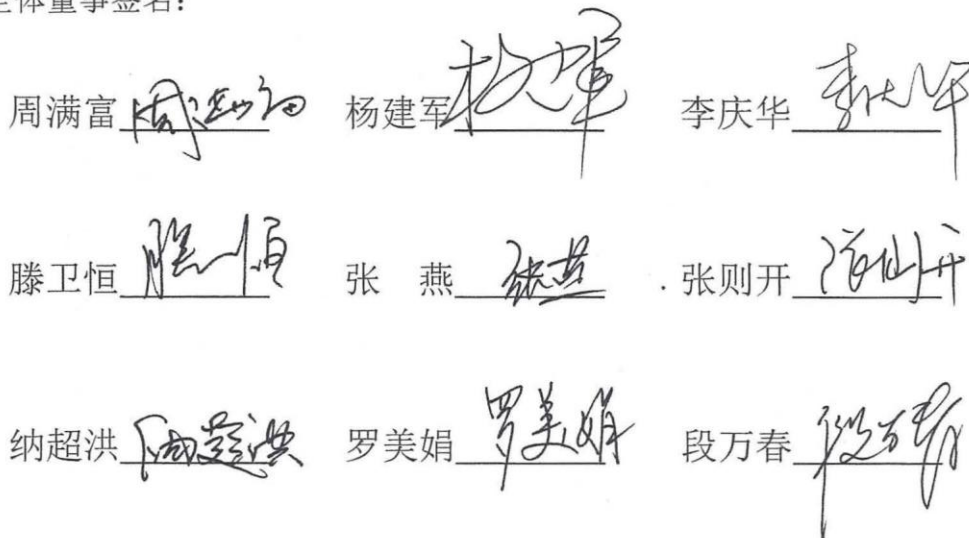 全体董事签名：
周满富 周满富 杨建军 杨建军 李庆华 李庆华
滕卫恒 滕卫恒 张 燕 张燕 张则开 张则开
纳超洪 纳超洪 罗美娟 罗美娟 段万春 段万春